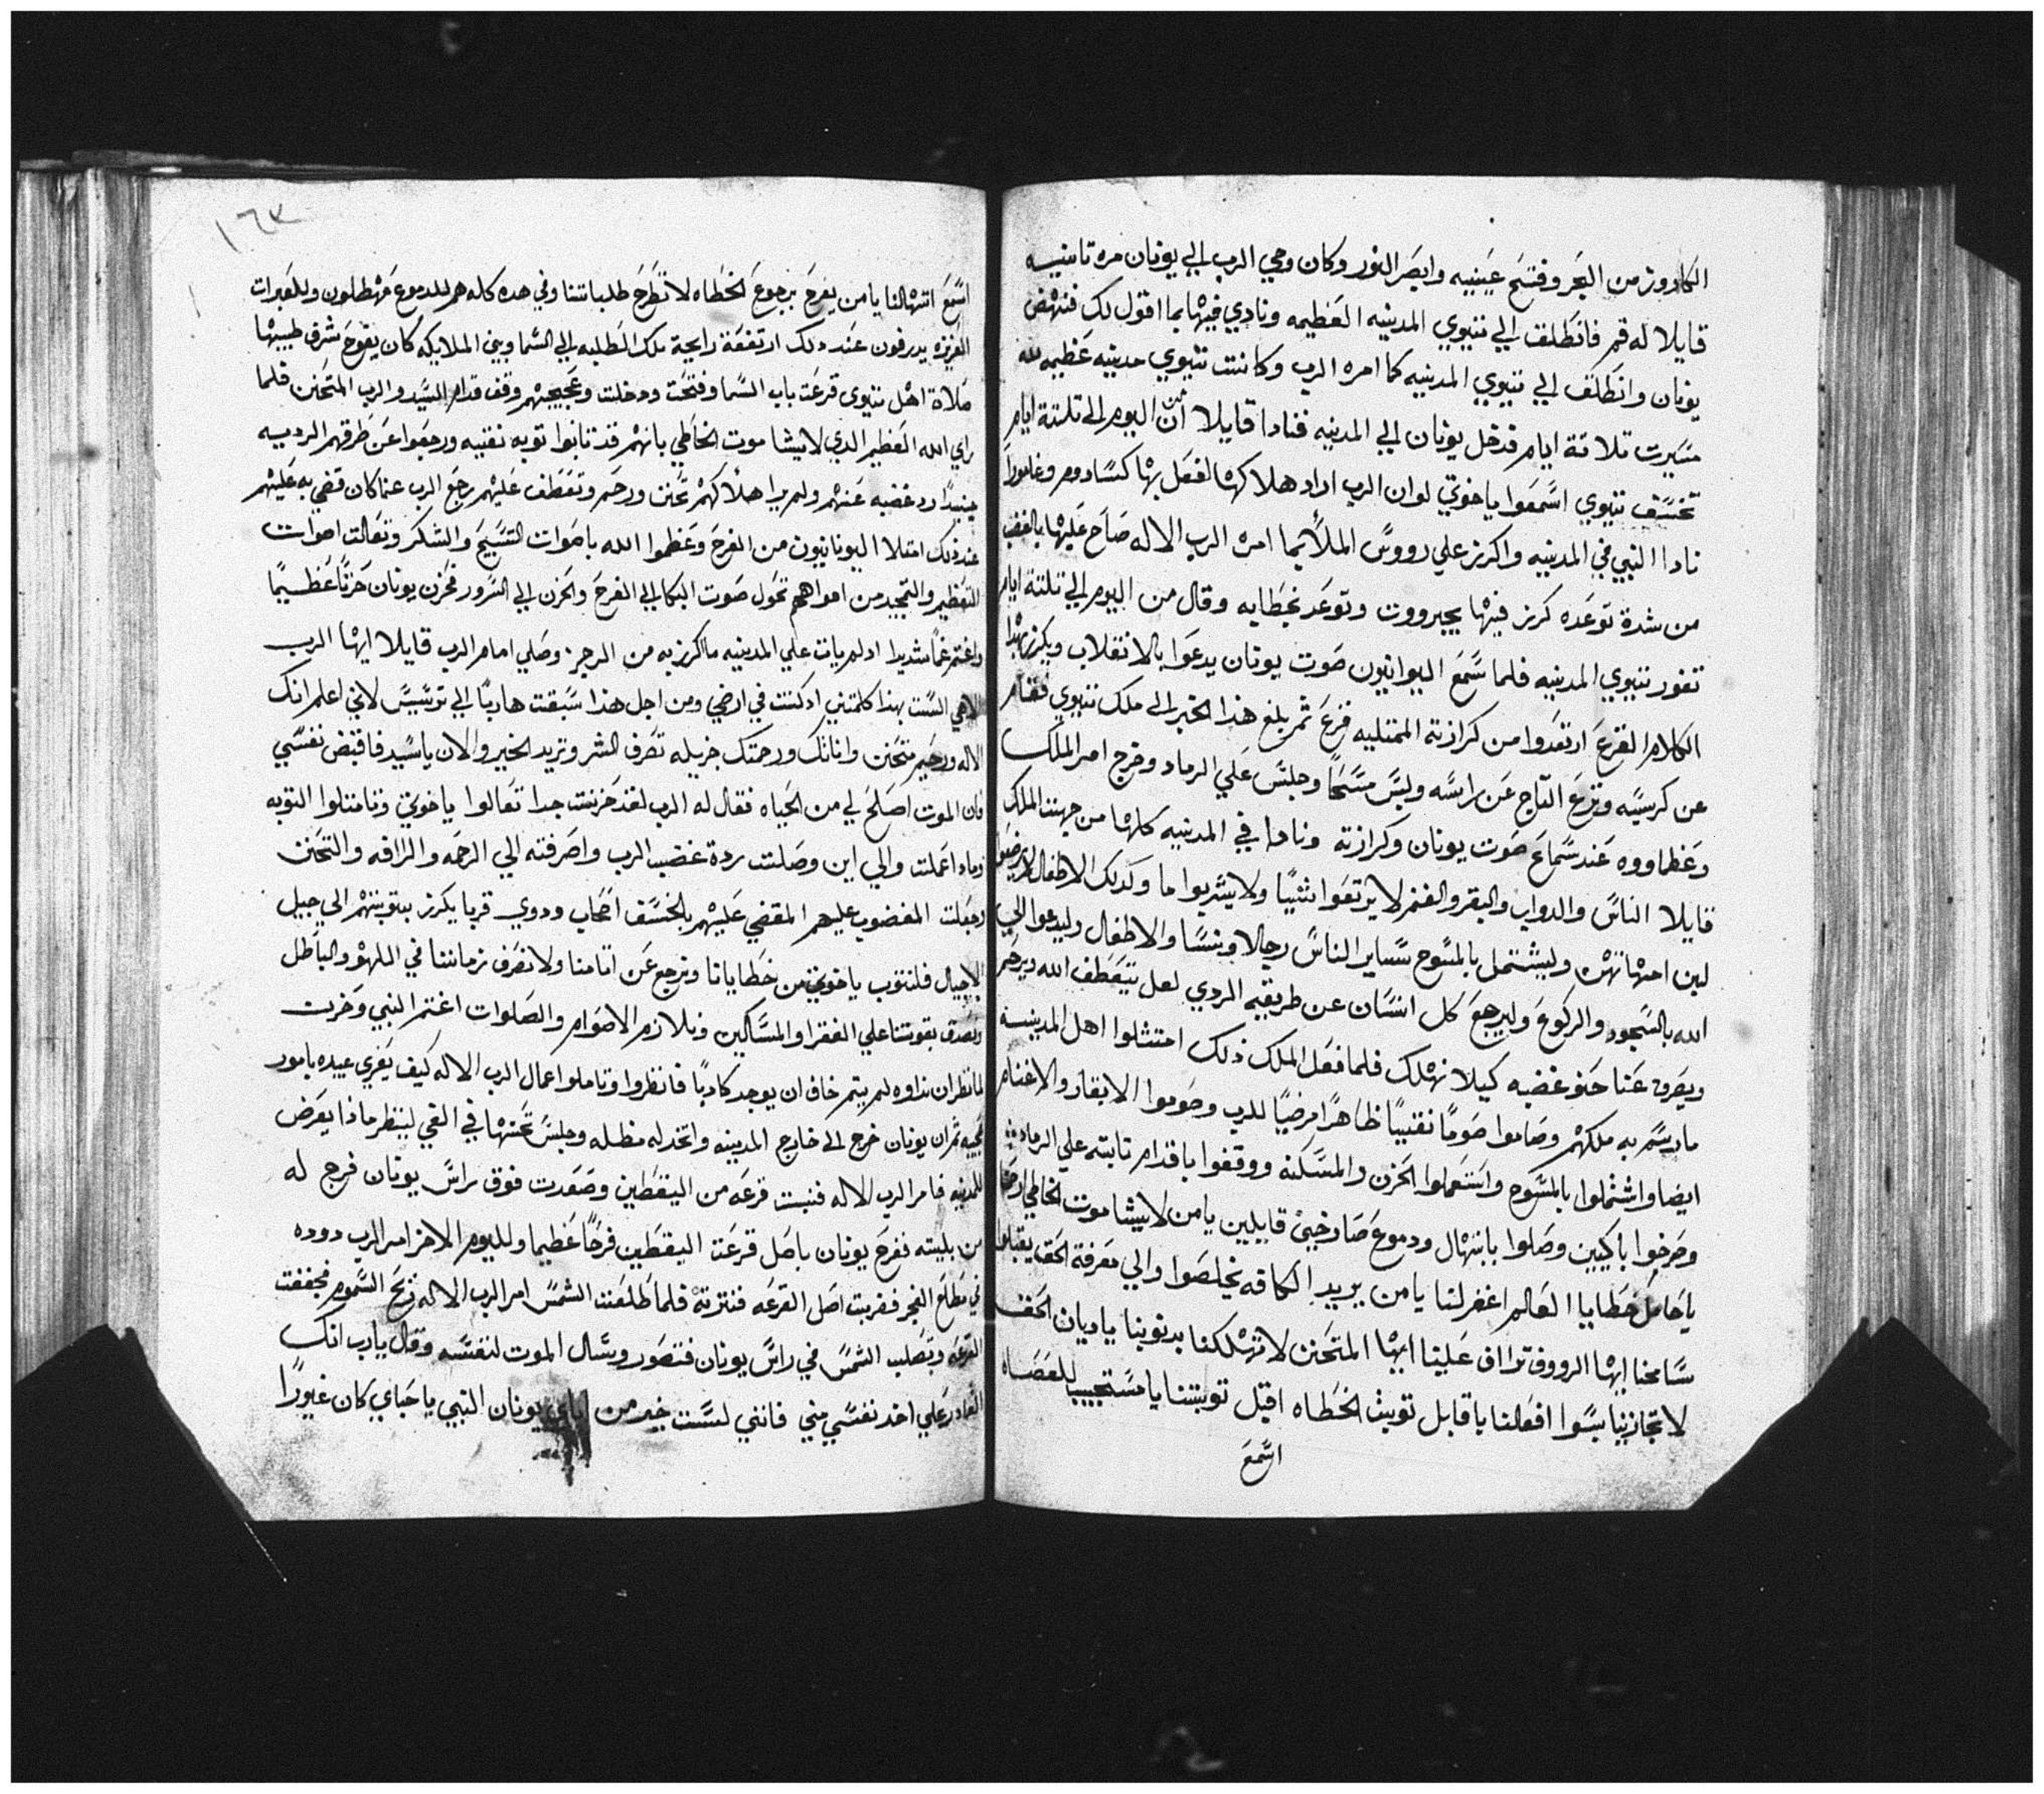 الكاروز من البحر وفتح عينيه وابصر النور وكان وحي الرب الي يونان مره تانييه
قايلا له قم فانطلق الي نينوي المدينيه العظيمه ونادي فيها بما اقول لك فنهض
يونان وانطلق الي نينوي المدينيه كما امره الرب وكانت نينوي مدينيه عظيمه لله
مسيرت تلاتة ايام فدخل يونان الي المدينيه فنادا قايلا ان من اليوم الي تلتة ايام
تخسف نينوي اسمعوا ياخوتي لوان الرب اراد هلاكها لفعل بها كسادوم وغامورا
نادا النبي في المدينيه واكرز علي رووس الملأ بما امره الرب الاله صاح عليها بالغضب
من شدة توعده كرز فيها بجبرووت وتوعد بخطايه وقال من اليوم الي تلتة ايام
تغور نينوي المدينيه فلما سمع النيوانيون صوت يونان يدعوا بالانقلاب ويكرز بهدا
الكلام الفزع ارتعدوا من كرازته الممتليه فزع ثم بلغ هذا الخبر الي ملك نينوي فقام
عن كرسيه ونزع التاج عن راسه ولبس مسحًا وجلس علي الرماد وخرج امر الملك
وعظماووه عند سماع صوت يونان وكرازته ونادا في المدينيه كلها من جهت الملك
قايلا الناس والدواب والبقر والغنم لا يرتعوا شيًا ولا يشربوا ما وكدلك الاطفال لا يرضعوا
لبن امهاتهن وليشتمل بالمسوح ساير الناس رجالا ونسا والاطفال وليدعوا الي
الله بالسجود والركوع وليرجع كل انسان عن طريقه الردي لعل يتعطف الله ويرحم
ويصرف عنا حنو غضبه كيلا نهلك فلما فعل الملك ذلك امتثلوا اهل المدينه
مارسم به ملكهم وصاموا صومًا نقيًا ظاهرًا مرضيًا للرب وصوموا الابقار والاغنام
ايضا واشتملوا بالمسوح واستعملوا الحزن والمسكنه ووقفوا باقدام تابته علي الرماد
وصرخوا باكيين وصلوا بابتهال ودموع صارخين قايلين يامن لا يشا موت الخاطي ارحمنا
ياحامل خطايا العالم اغفر لنا يامن يريد الكافه يخلصوا والي معرفة الحق يقبلوا
سامحنا ايها الرووف ترااف علينا ايها المتحنن لا تهلكنا بدنوبنا ياديان الحق
لا تجازينا بسوا افعلنا ياقابل توبت الخطاه اقبل توبتنا يامستجيب للعصاه
اسمع
١٦٣
اسمع ابتهالنا يامن يفرح برجوع الخطاه لا تطرح طلباتنا وفي هده كله هم للدموع مهطلون وللعبرات
الغزيره يدرفون عند دلك ارتفعة رايحة تلك الطلبه الي السما وبين الملايكه كان يفوح شرف طيبها
صلاة اهل نينوي قرعت باب السما وفتحت ودخلت وعجيجهم وقف قدام السيد والرب المتحنن فلما
راي الله العظيم الدي لا يشا موت الخاطي بانهم قد تابوا توبه نقيه ورجعوا عن طرقهم الرديه
حينيدًا رد غضبه عنهم ولم يرا هلاكهم تحنن ورحم وتعطف عليهم رجع الرب عنما كان قضي به عليهم
عند ذلك امتلا اليونانيون من الفرح وعظموا الله باصوات التسبيح والشكر وتعالت اصوات
التعظيم والتمجيد من افواههم تحول صوت البكا الي الفرح والحزن الي السرور فحزن يونان حزنًا عظيمًا
واغتم غمًا شديدا ادلم يات علي المدينيه ما اكرز به من الرجز وصلي امام الرب قايلا ايها الرب
الاهي الست بهذا كلمتني ادكنت في ارضي ومن اجل هذا سبقت هاربًا الي ترسيس لاني اعلم انك
الاله ورحيم متحنن واناتك ورحمتك جزيله تصرف الشر وتريد الخير والان ياسيد فاقبض نفسي
فان الموت اصلح لي من الحياه فقال له الرب لقد حزنت جدا تعالوا ياخوتي وتاملوا التوبه
وماداعملت والي اين وصلت ردة غضب الرب واصرفته الي الرحمه والراافه والتحنن
وجعلت المغضوب عليهم المقضي عليهم بالخسف اصحاب ودوي قربا يكرز بتوبتهم الي جيل
الاجيال فلنتوب ياخوتي من خطايانا ونرجع عن اتامنا ولا نصرف زماننا في اللهو والباطل
ونصدق بقوتنا علي الفقرا والمساكين ونلازم الاصوام والصلوات اغتم النبي وحزن
لما نظر ان نداوه لم يتم خاف ان يوجد كادبًا فانظروا وتاملوا اعمال الرب الاله كيف يعزي عبيده بامور
عجيبه ثم ان يونان خرج الي خارج المدينه واتخد له مظله وجلس تحتها في الفي لينظر ماذا يعرض
للمدينه فامر الرب الاله فنبت قرعه من اليقطين وصعدت فوق راس يونان فرج له
من بليته ففرح يونان باصل قرعت اليقطين فرحًا عظيما ولليوم الاخر امر الرب دوده
في مطلع الفجر فضربت اصل القرعه فنترته فلما طلعت الشمس امر الرب الاله ريح السموم فجففت
القرعه وتصلب الشمس في راس يونان فتضور وسال الموت لنفسه وقال يارب انك
القادر علي اخد نفسي مني فانني لست خير من اباي يونان النبي ياحباي كان غيورًا